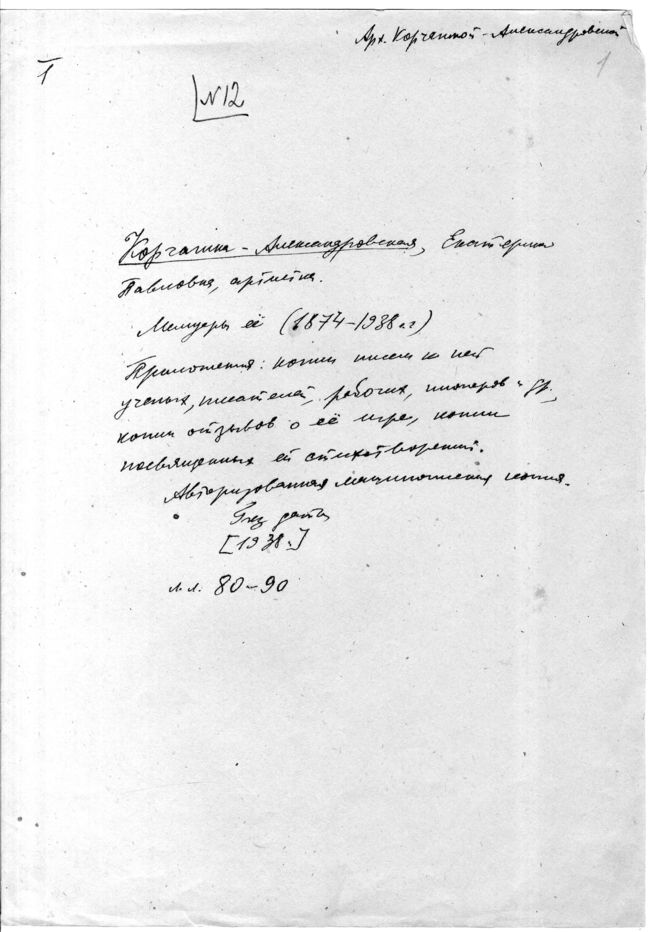 Арх. Корчагиной-Александровской
1
I
№12
Корчагина-Александровская, Екатерина
Павловна, артистка.
Мемуары её (1874-1938 гг)
Приложения: копии писем к ней
ученых, писателей, рабочих, пионеров и др.,
копии отзывов о её игре, копии
посвященных ей стихотворений.
Авторизованная машинописная копия.
Без даты
[1938 г.]
л.л. 80-90